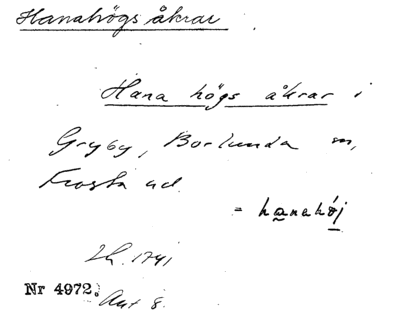 Hanahögs åkrar
Hana högs åkrar i
Gryby, Borlunda sn,
Frosta hd.
= hanahöj
Lh. 1741
Nr 4972. Akt 8.